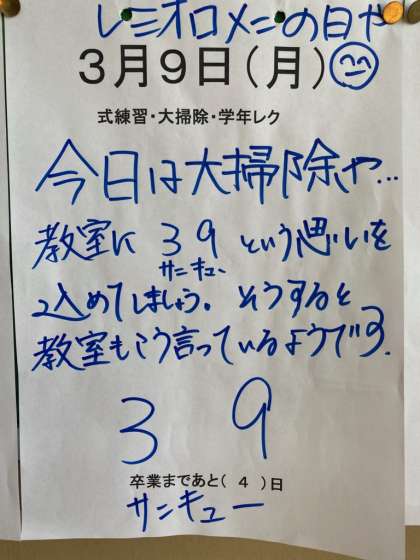 レミオロメンの日や
3月9日(月)
式練習・大掃除・学年レク
今日は大掃除や…
教室に39という思いを
サンキュー
込めてしましょう。そうすると
教室もこう言っているようです.
3 9
卒業まであと( 4 )日
サンキュー